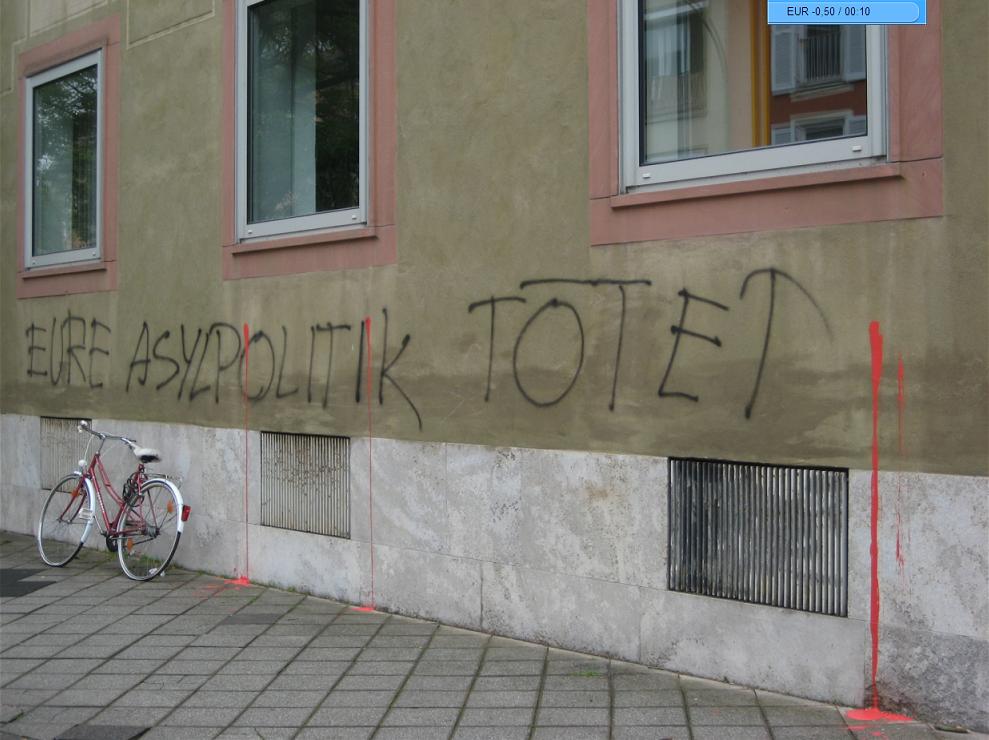 EUR -0,50 / 00:10
EURE ASYLPOLITIK TÖTET